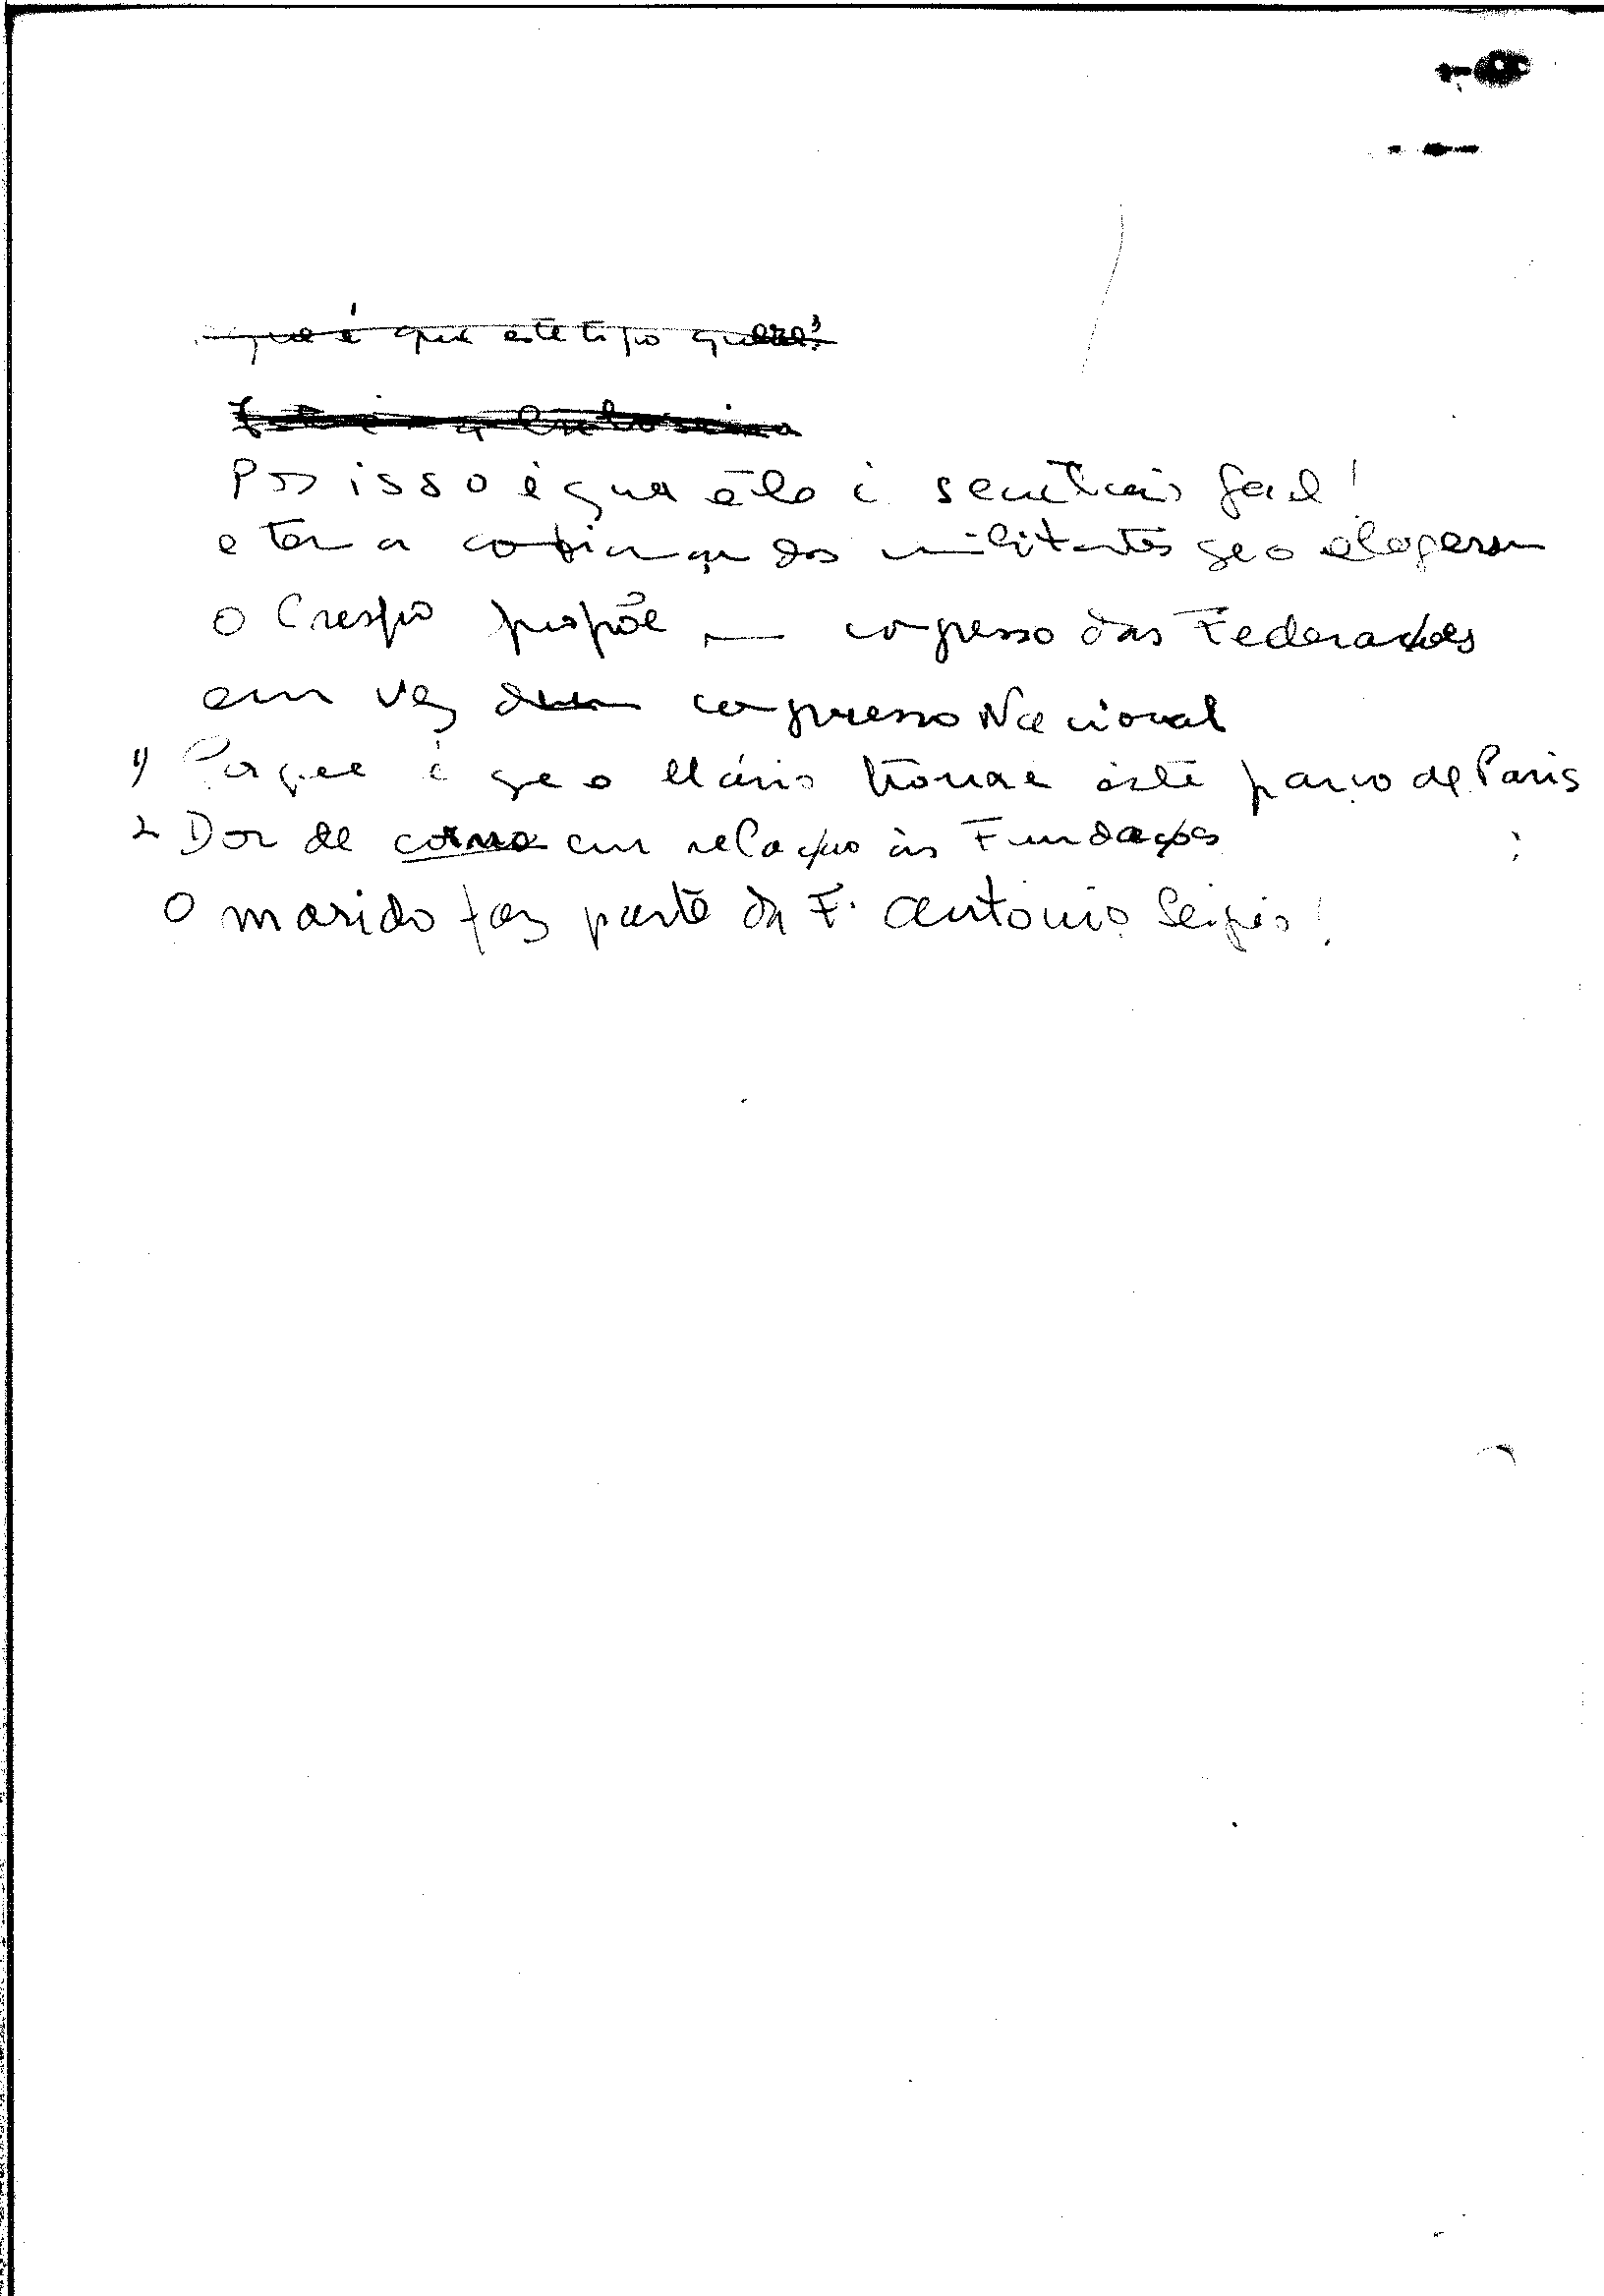 que é que este tipo quere?
Por isso é que êle é secretário geral!
e tem a confiança dos militantes que o elegeram
O Crespo propõe um congresso das Federações
em vez dum congresso Nacional
1) Porque é que o Mário trouxe este parvo de Paris
2 Dor de corno em relação às Fundações
O marido faz parte da F. António Sérgio!